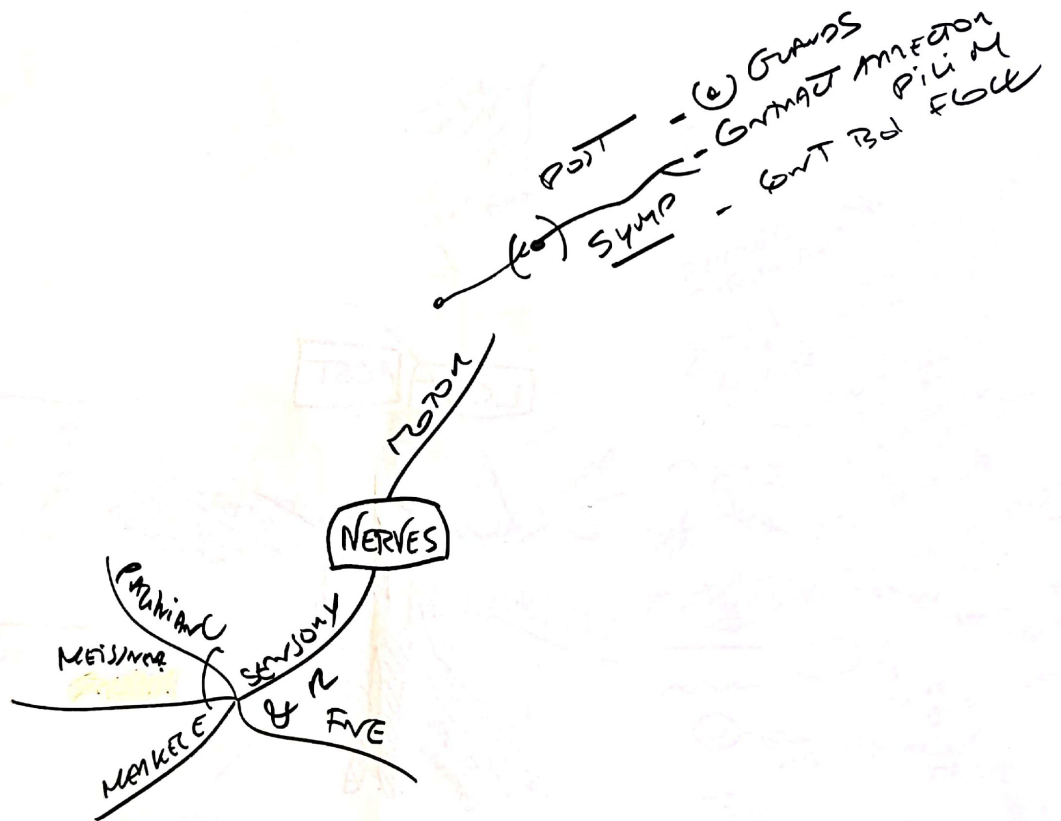 POST - (+) GLANDS
- CONTRACT ARRECTOR
PILI M
SYMP - CONT BLD FLOW
MOTOR
NERVES
SENSORY
& R
PACINIAN C
MEISSNER
MERKEL E
FNE